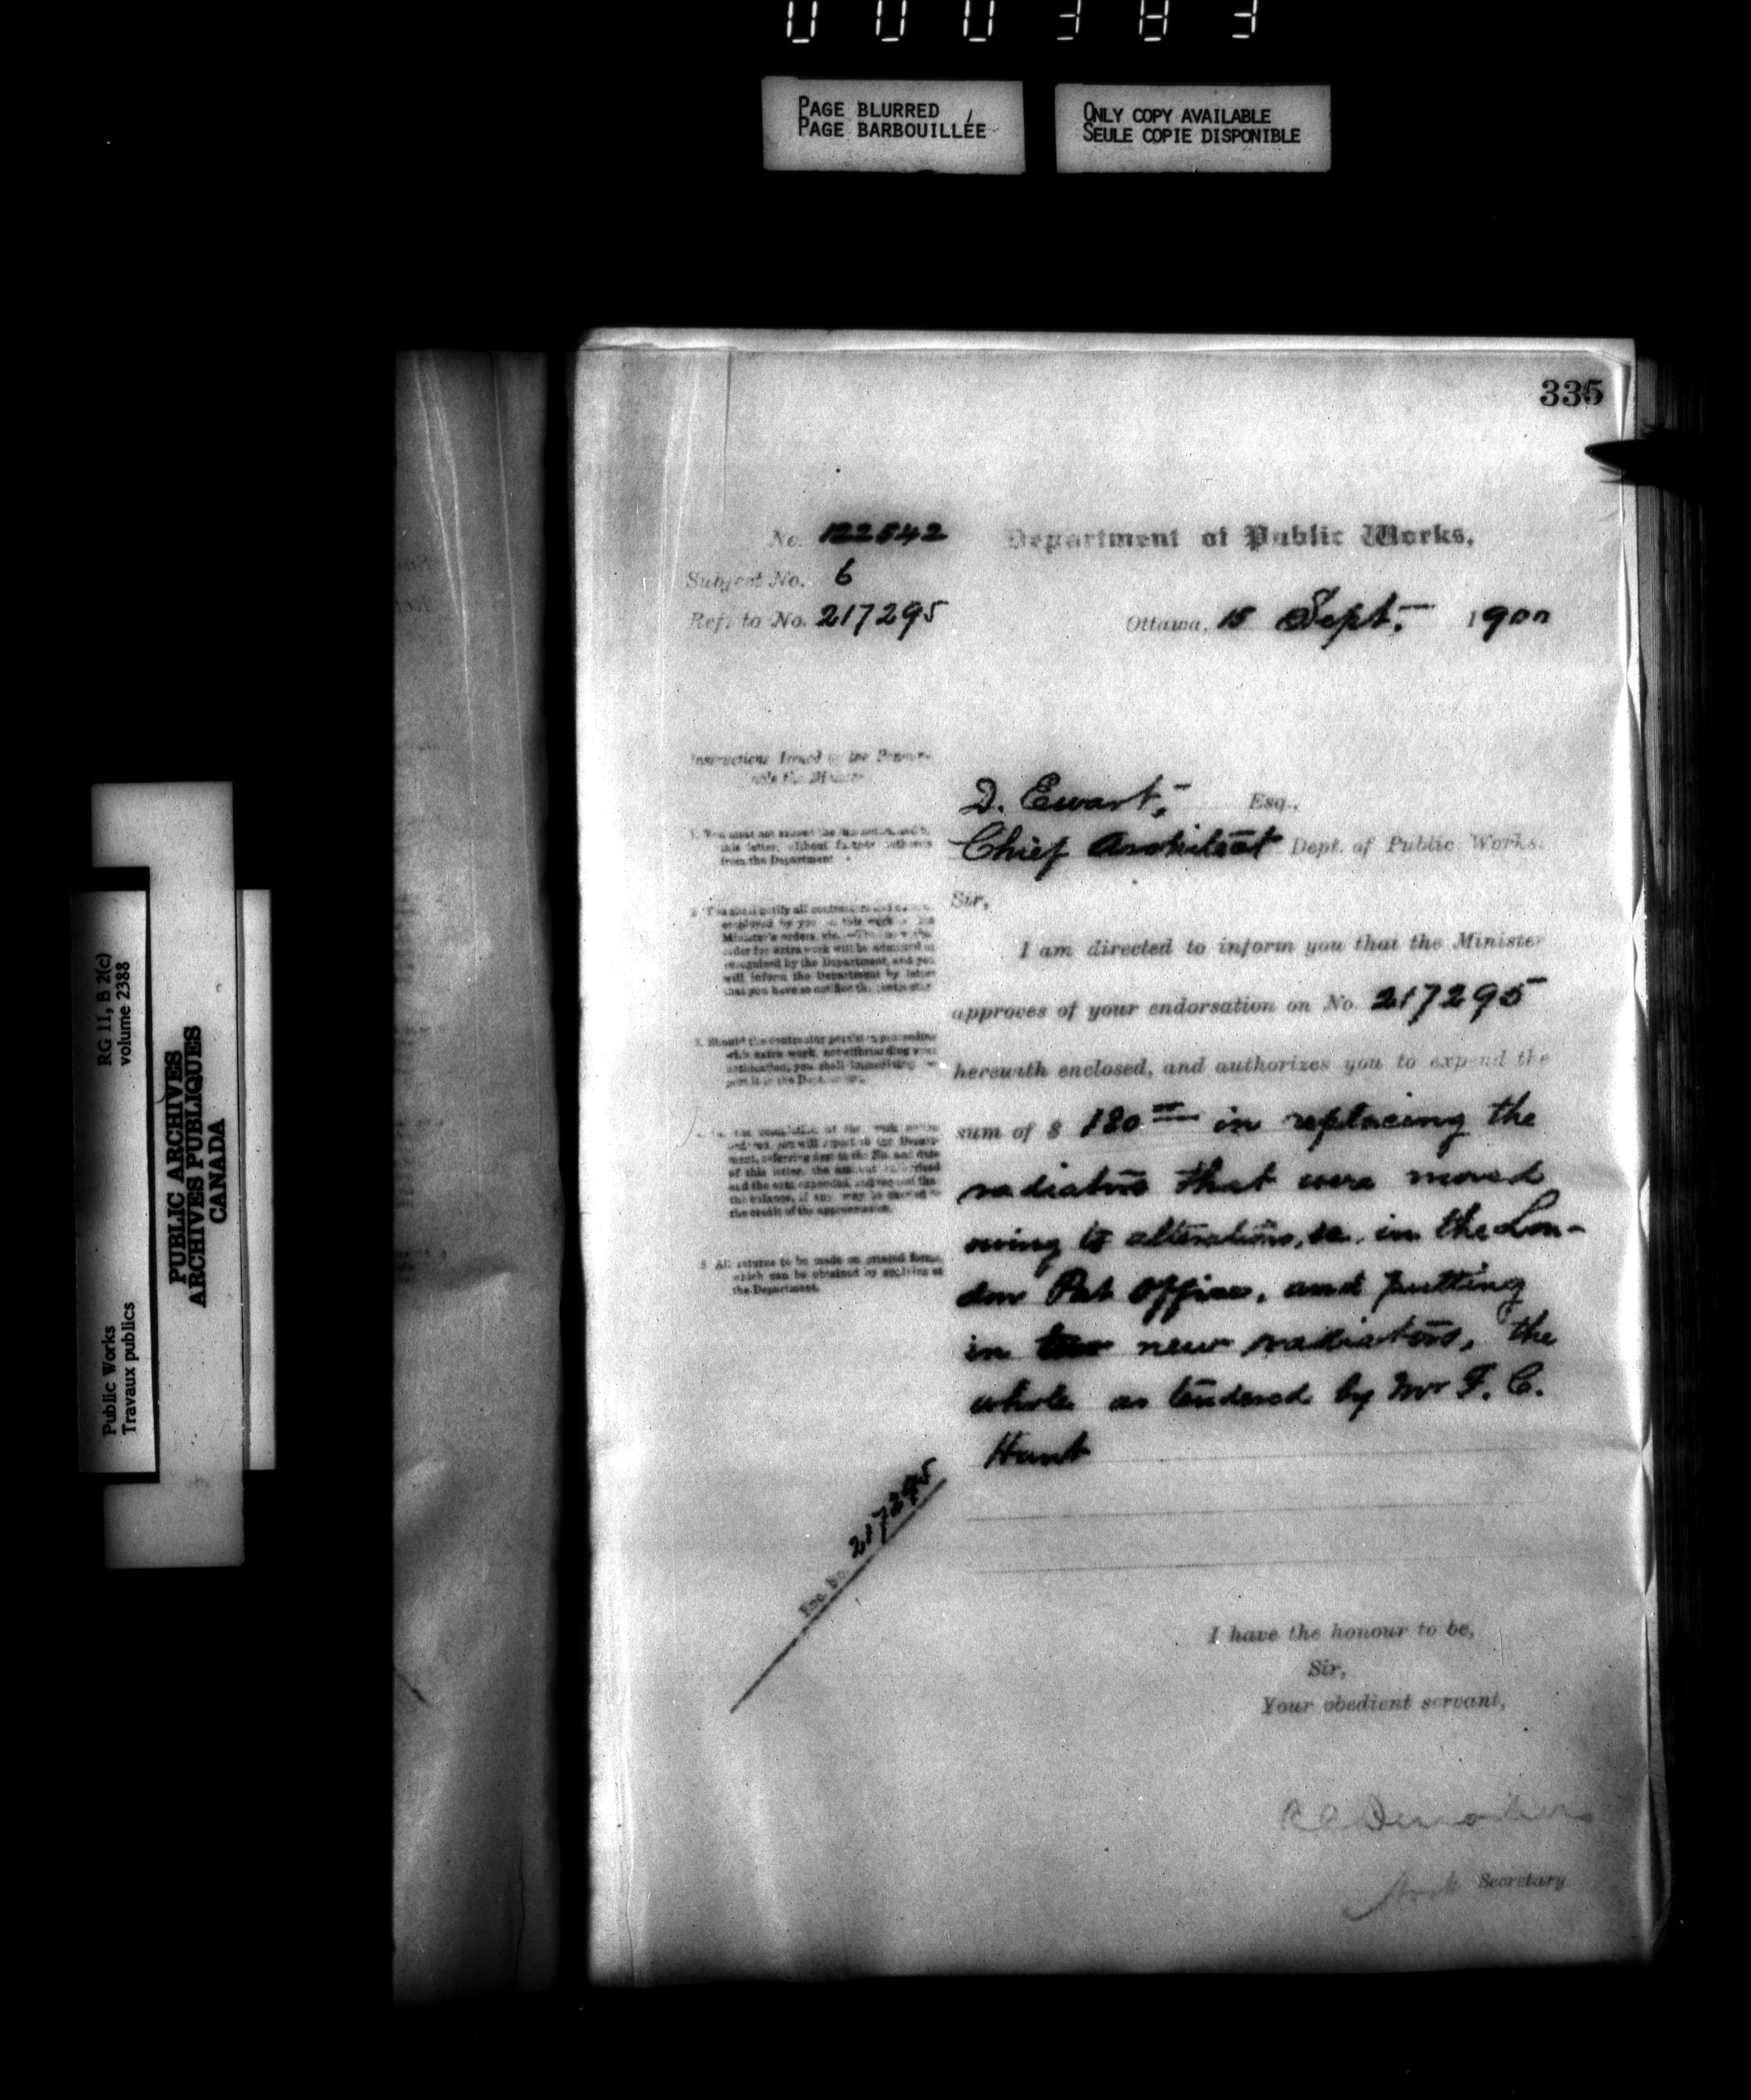 000383
PAGE BLURRED
PAGE BARBOUILLÉE
ONLY COPY AVAILABLE
SEULE COPIE DISPONIBLE
Public Works
Travaux publics
RG 11, B 2(c)
volume 2388
PUBLIC ARCHIVES
ARCHIVES PUBLIQUES
CANADA
335
No. 122542
Department of Public Works,
Subject No. 6
Ref. to No. 217295
Ottawa, 15 Sept. 1900
Instructions Issued by the Honour-
able the Minister
D. Ewart, Esq.,
Chief Architect Dept. of Public Works.
1. You must not exceed the
this letter, without further authority
from the Department
2. You shall notify all contractors
employed by you on this work of the
Minister's orders, viz.:—That no
order for extra work will be admitted or
recognised by the Department, and you
will inform the Department by letter
that you have so notified the contractor
3. Should the contractor persist in proceeding
with extra work, notwithstanding your
notification, you shall immediately re-
port it to the Department.
the completion of the work
you will report to the Depart-
ment, referring to the No. and date
of this letter, the amount authorised
and the sum expended, and request that
the balance, if any may be carried to
the credit of the appropriation.
5 All returns to be made on printed forms
which can be obtained by applying at
the Department.
Sir,
I am directed to inform you that the Minister
approves of your endorsation on No. 217295
herewith enclosed, and authorizes you to expend the
sum of $ 180 00 in replacing the
radiators that were moved
owing to alterations, &c. in the Lon-
don Post Office, and putting
in two new radiators, the
whole as tendered by Mr F. C.
Hunt
Enc. No. 217295
I have the honour to be,
Sir,
Your obedient servant,
Secretary